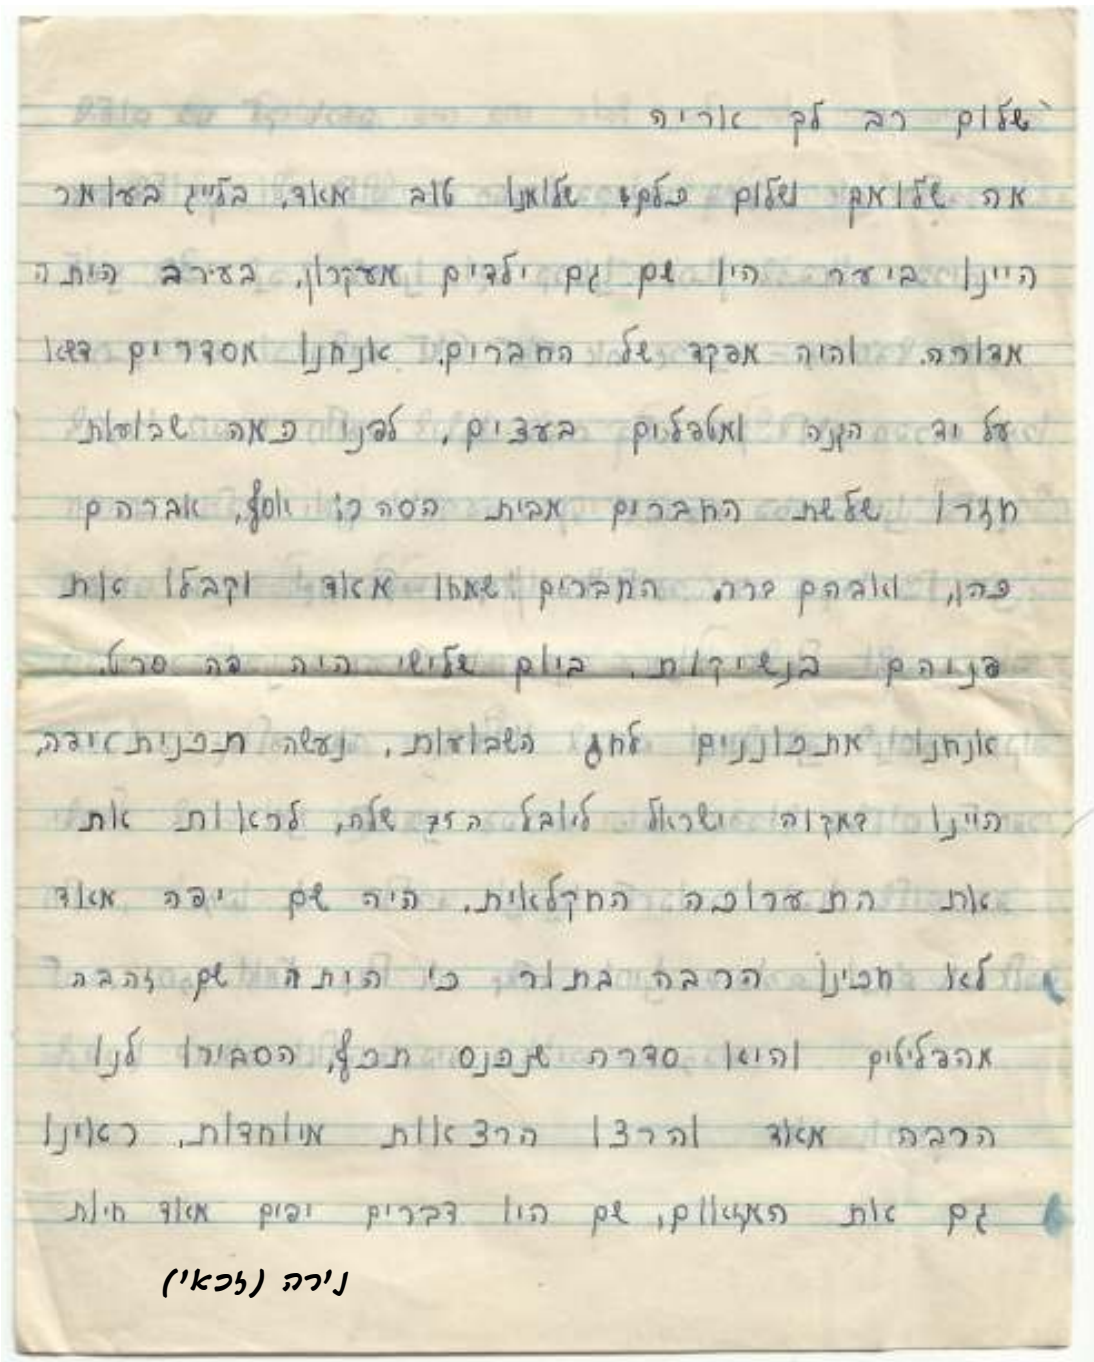 שלום רב לך אריה
מה שלומך ושלום כולם? שלומנו טוב מאוד. בלייג בעומר
היינו ביער היו שם גם ילדים מעקרון, בעירב היתה
מדורה. והיה מפקד של החברים. אנחנו מסדרים דשא
על יד הגנה ומטפלים בעצים, לפנו כמה שבועות
חזרו שלשת החברים מבית הסהר: אסף, אברהם
כהן, ואבהם ברר. החברים שמחו מאוד וקבלו את
פניהם בנשיקות. ביום שלישי היה פה סרט.
אנחנו מתכוננים לחג השבועות, נעשה תכנית יפה,
היינו במקוה ישראל ליובל ה75 שלה, לראות את
את התערוכה החקלאית. היה שם יפה מאוד
לא חכינו הרבה בתור כי היתה שם זהבה
מהפליטים והיא סדרה שנכנס תכף, הסבירו לנו
הרבה מאוד והרצו הרצאות מיוחדות, ראינו
גם את המזאום, שם היו דברים יפים מאוד חיות
נירה (זכאי)